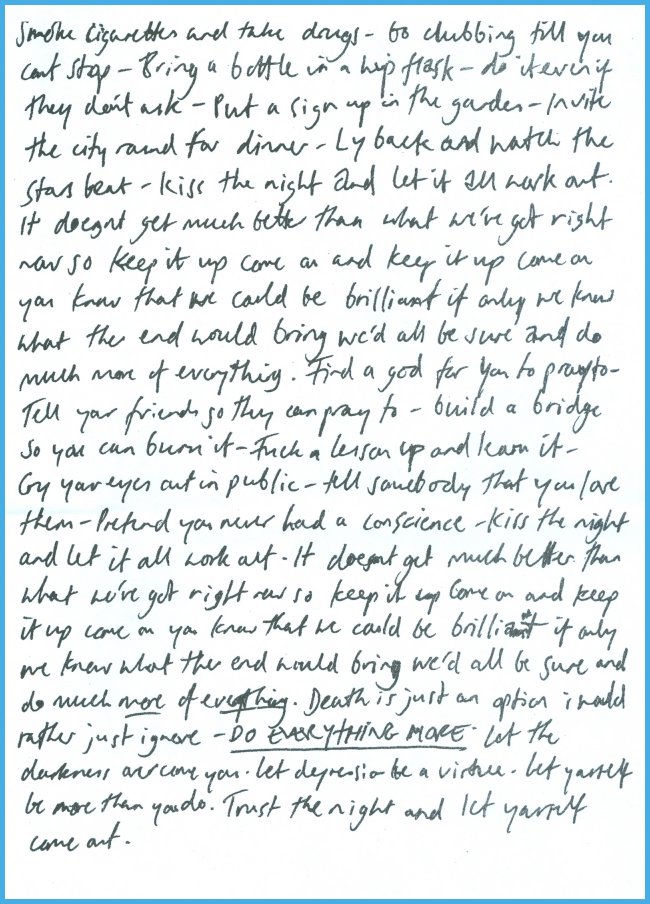 Smoke Cigarettes and take drugs - Go clubbing till you
cant stop - Bring a bottle in a hip flask - do it even if
they dont ask - Put a sign up in the garden - Invite
the city round for dinner - Ly back and watch the
stars beat - Kiss the night and let it all work out.
It doesnt get much better than what we've got right
now so keep it up come on and keep it up come on
you know that we could be brilliant if only we knew
what the end would bring we'd all be sure and do
much more of everything. Find a god for you to pray to -
Tell your friends so they can pray to - build a bridge
so you can burn it - Fuck a lesson up and learn it -
Cry your eyes out in public - tell somebody that you love
them - Pretend you never had a conscience - Kiss the night
and let it all work out. It doesnt get much better than
what we've got right now so keep it up come on and keep
it up come on you know that we could be brilliant if only
we knew what the end would bring we'd all be sure and
do much more of everything. Death is just an option i would
rather just ignore - DO EVERYTHING MORE. Let the
darkness overcome you. Let depression be a virtue. Let yourself
be more than you do. Trust the night and let yourself
come out.